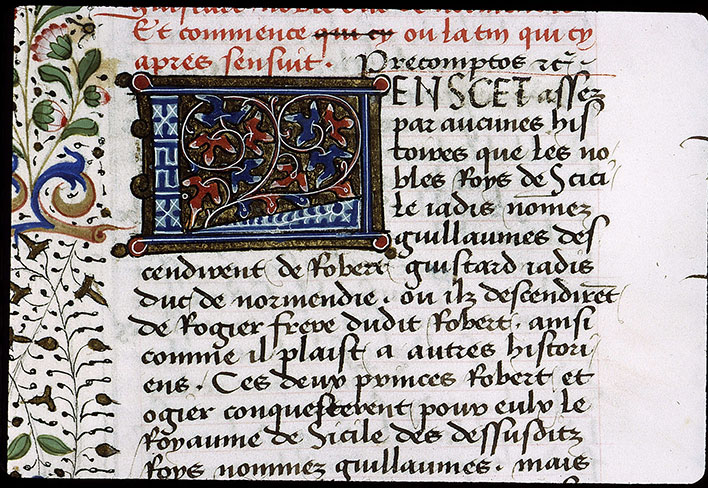 Et commence qui cy ou latin qui cy
apres sensuit. Precomptos etc.
L ENSCET assez
par aucunes his
toires que les no
bles Roys de Scici
le iadis nomez
guillaumes des
cendirent de Robert guistard iadis
duc de normendie. ou ilz descendirēt
de Rogier frere dudit Robert, ainsi
comme il plaist a autres histori
ens. Ces deux princes Robert et
ogier conquesterent pour eulx le
Royaume de Sicile des dessusditz
Roys nommez guillaumes. mais